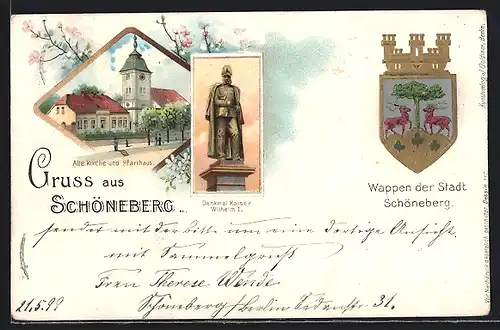 Alte Kirche und Pfarrhaus.
Denkmal Kaiser
Wilhelm I.
Wappen der Stadt
Schöneberg.
Gruss aus
SCHÖNEBERG.
sendet mit der bitte um eine derartige Ansicht
mit Sammelgruß
Frau Therese Wende
Schöneberg Berlin Sedanstr 31.
21.5.99